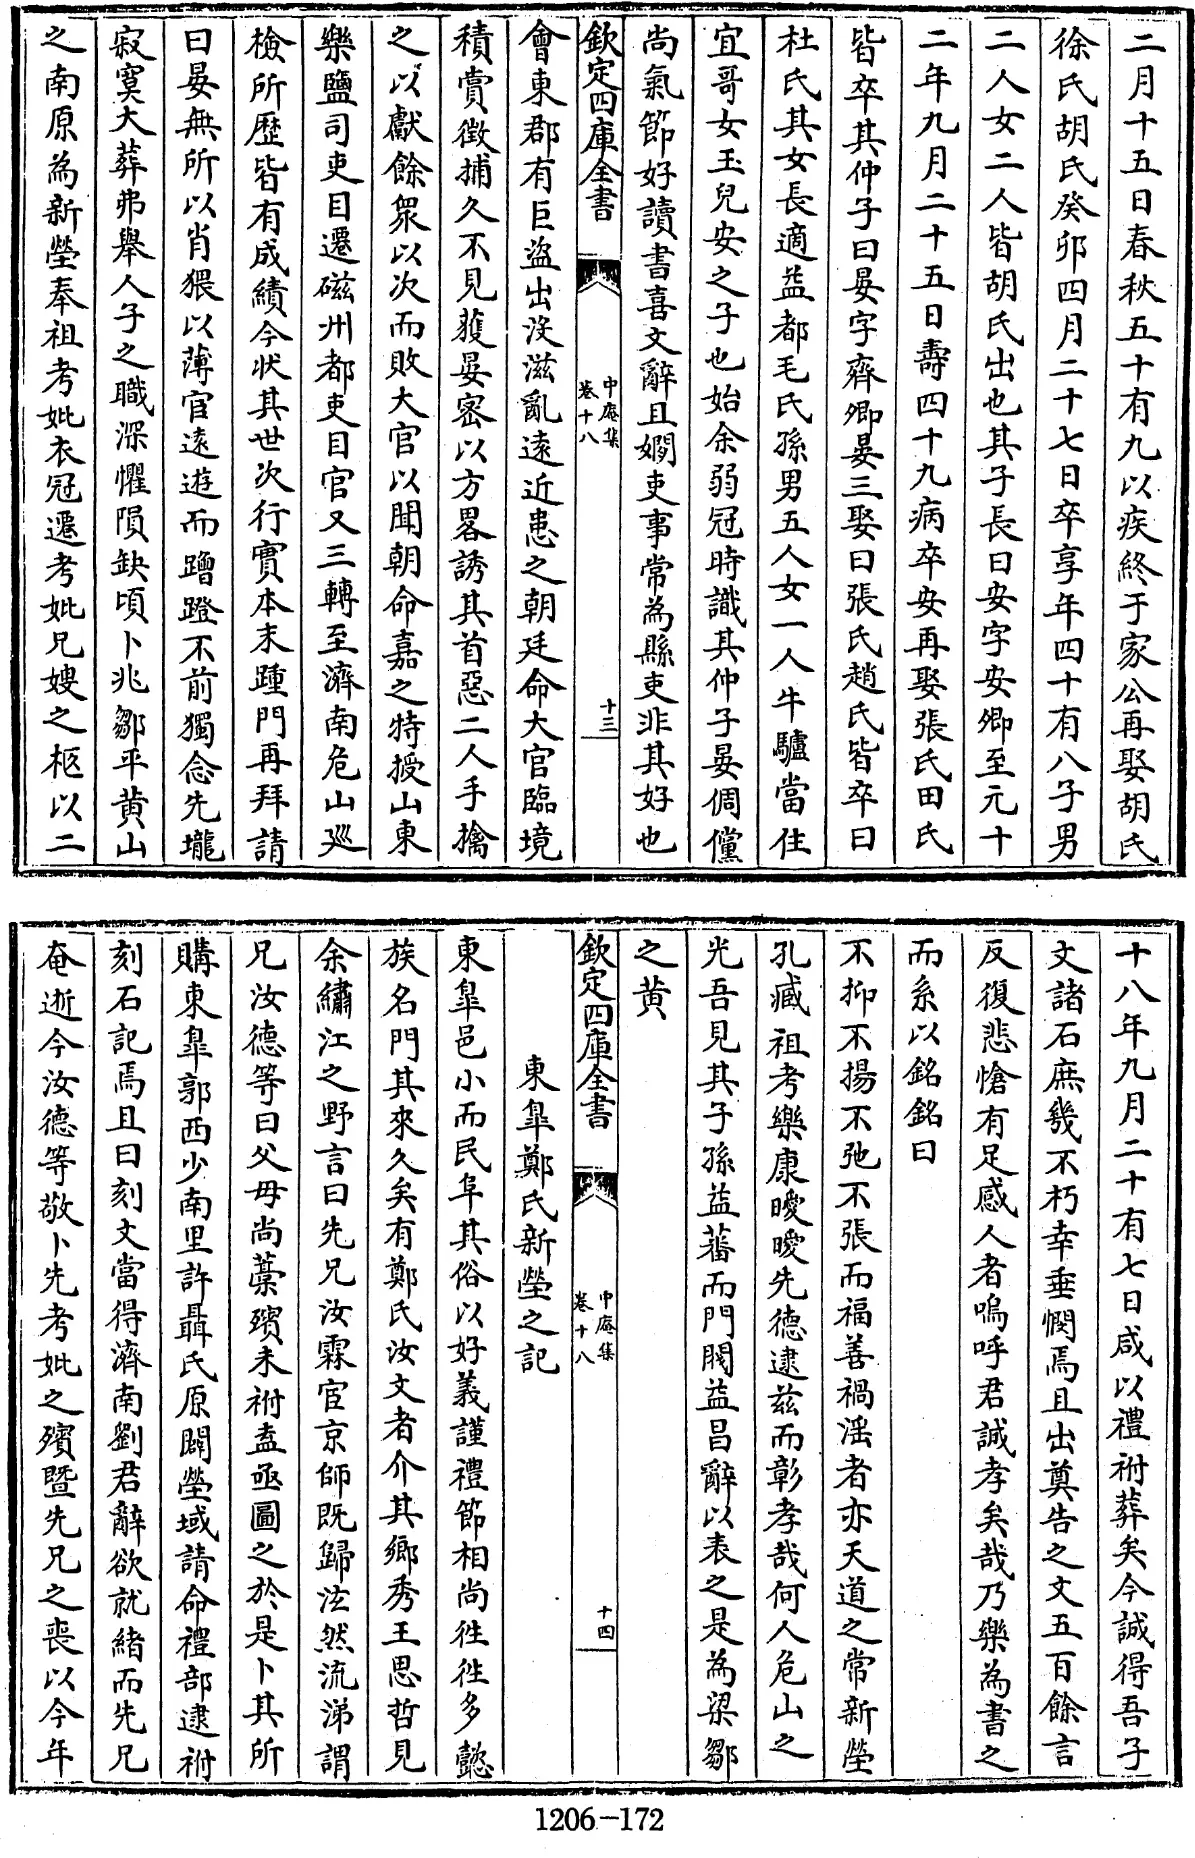 二月十五日春秋五十有九以疾終于家公再娶胡氏
徐氏胡氏癸卯四月二十七日卒享年四十有八子男
二人女二人皆胡氏出也其子長曰安字安卿至元十
二年九月二十五日壽四十九病卒安再娶張氏田氏
皆卒其仲子曰晏字齊卿晏三娶曰張氏趙氏皆卒曰
杜氏其女長適益都毛氏孫男五人女一人牛驢當住
宜哥女玉兒安之子也始余弱冠時識其仲子晏倜儻
尚氣節好讀書喜文辭且嫺吏事常為縣吏非其好也
欽定四庫全書
中庵集
卷十八
十三
會東郡有巨盜出沒滋亂遠近患之朝廷命大官臨境
積賞徵捕久不見獲晏密以方畧誘其首惡二人手擒
之以獻餘衆以次而敗大官以聞朝命嘉之特授山東
樂鹽司吏目遷磁州都吏目官又三轉至濟南危山廵
檢所歷皆有成績今狀其世次行實本末踵門再拜請
曰晏無所以肖猥以薄官遠遊而蹭蹬不前獨念先壠
寂寞大葬弗舉人子之職深懼隕缺頃卜兆鄒平黄山
之南原為新塋奉祖考妣衣冠遷考妣兄嫂之柩以二
十八年九月二十有七日咸以禮祔葬矣今誠得吾子
文諸石庶幾不朽幸垂憫焉且出奠告之文五百餘言
反復悲愴有足感人者嗚呼君誠孝矣哉乃樂為書之
而系以銘銘曰
不抑不揚不弛不張而福善禍滛者亦天道之常新塋
孔臧祖考樂康曖曖先德逮兹而彰孝哉何人危山之
光吾見其子孫益蕃而門閥益昌辭以表之是為梁鄒
之黄
欽定四庫全書
中庵集
卷十八
十四
東臯鄭氏新塋之記
東臯邑小而民阜其俗以好義謹禮節相尚徃徃多懿
族名門其來久矣有鄭氏汝文者介其鄉秀王思哲見
余繡江之野言曰先兄汝霖宦京師既歸泫然流涕謂
兄汝德等曰父母尚藁殯未祔盍亟圖之於是卜其所
購東臯郭西少南里許聶氏原闢塋域請命禮部逮祔
刻石記焉且曰刻文當得濟南劉君辭欲就緒而先兄
奄逝今汝德等敬卜先考妣之殯暨先兄之喪以今年
1206-172